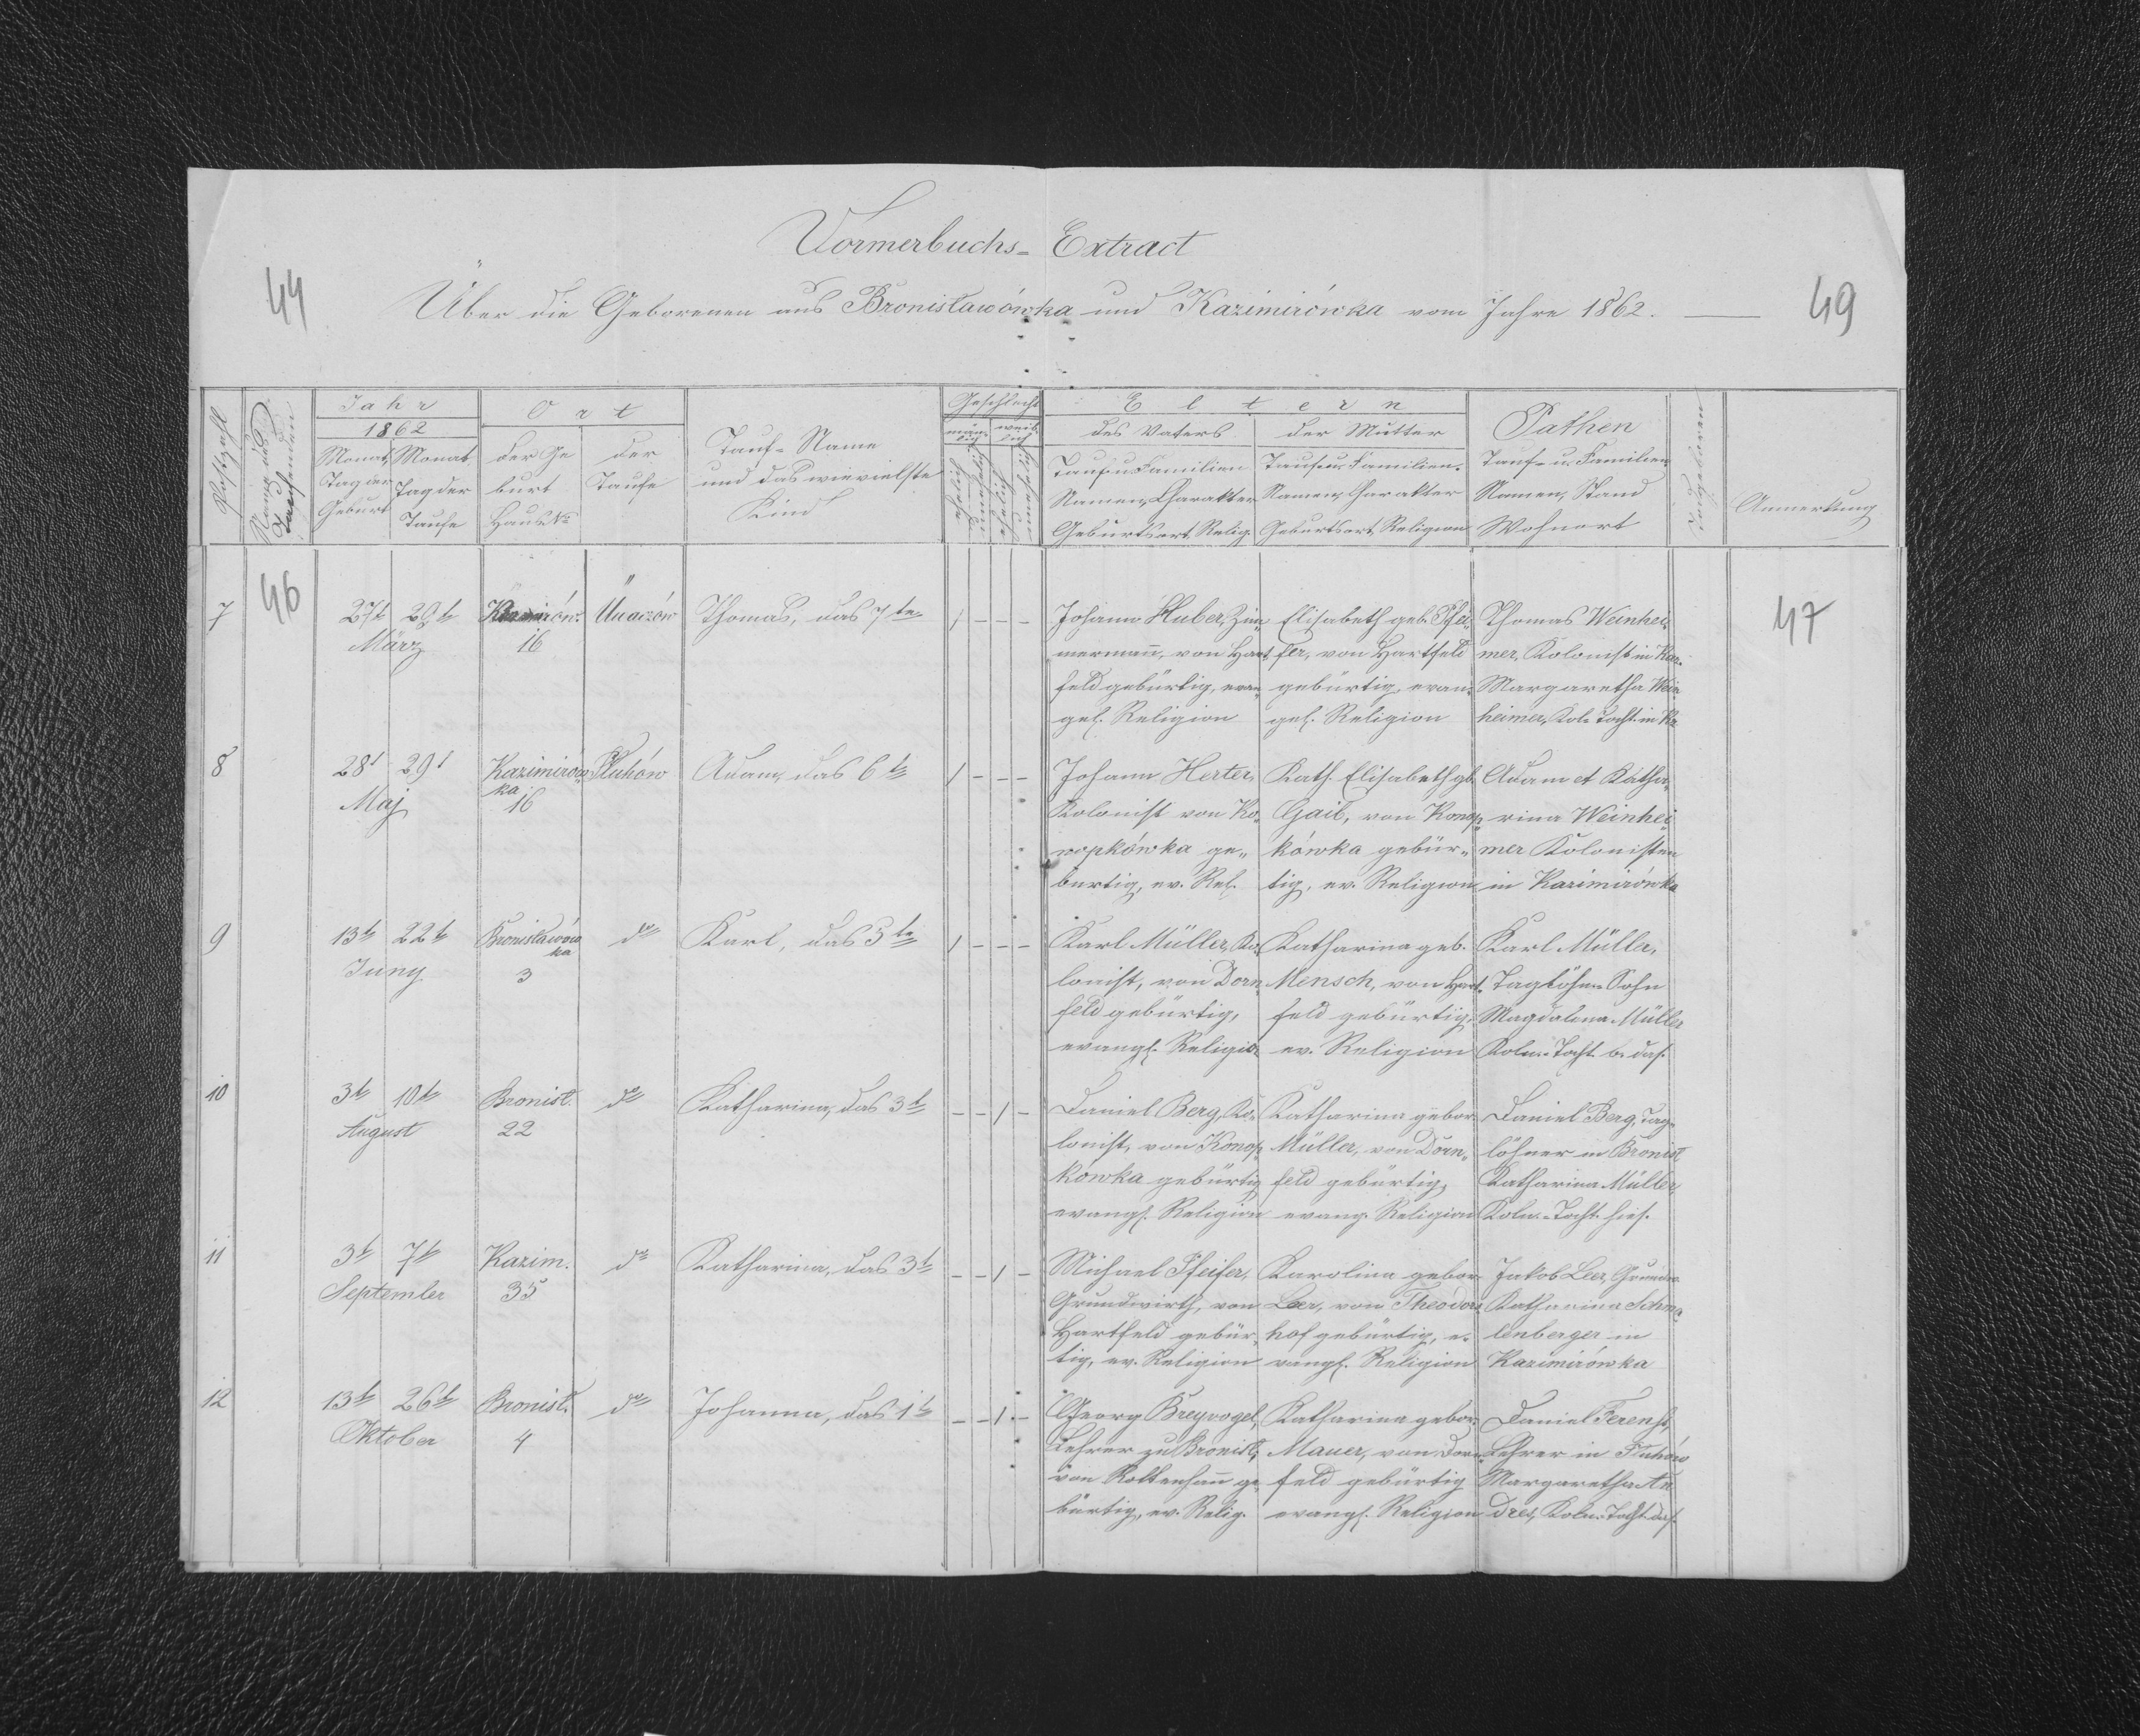 Vormerbuchs= Extract
44
49
Über die Geborenen aus Bronisławówka und Kazimirówka vom Jahre 1862.
Postzahl
Name des Taufenden
Jahr
1862
Monat, Tag der Geburt
Monat, Tag der Taufe
Ort
der Ge
burt
Haus No
der
Taufe
Tauf=Name
und das wievielste
Kind
Geschlecht
män=
lich
weib
lich
ehelich
unehelich
ehelich
unehelich
Eltern
des Vaters
Tauf u Familien
Namen, Charakter
Geburtsort, Relig.
der Mutter
Tauf=u. Familien=
Namen, Charakter
Geburtsort, Religion
Pathen
Tauf=u. Familien
Namen, Stand
Wohnort
Anmerkung
46
47
7
27t 29t
März
16
Thomas, das 7te
1 - - -
Johann Huber, Zim=
mermann, von Hart
feld gebürtig, evan=
gel. Religion
Elisabeth geb. Pfei=
fer, von Hartfeld
gebürtig, evan=
gel. Religion
Thomas Weinhei=
mer, Kolonist in Kaz.
Margaretha Wein
heimer, Kol. Tocht. in Kz
8
28t 29t
Maj
Kazimirów
ka
16
Płuhów
Adam, das 6te
1 - - -
Johann Herter,
Kolonist von Ko=
nopkówka ge=
burtig, ev. Rel.
Kath. Elisabeth gb.
Gaib, von Konop
kówka gebür=
tig, ev. Religion
Adam et Katha=
rina Weinhei
mer Kolonisten
in Kazimirówka
9
13te 22te
Juny
Bronisławów
ka
3
do
Karl, das 5te
1 - - -
Karl Müller, Ko=
lonist, von Dorn
feld gebürtig,
evangl. Religion
Katharina geb.
Mensch, von Hart=
feld gebürtig,
ev. Religion
Karl Müller,
Taglöhner Sohn
Magdalena Müller
Koln.=Tocht. b. das.
10
3te 10te
August
Bronisł.
22
do
Katharina, das 3te
- - 1 -
Daniel Berg, Ko=
lonist, von Konop
kowka gebürtig
evangl. Religion
Katharina gebor.
Müller, von Dorn=
feld gebürtig,
evang. Religion
Daniel Berg, Tag=
löhner in Bronisł
Katharina Müller,
Koln.=Tocht. hies.
11
3te 7te
September
Kazim.
35
do
Katharina, das 3te
- - 1 -
Michael Pfeifer,
Grundwirth, von
Hartfeld gebür=
tig, ev. Religion
Karolina gebor
Leer, von Theodors
hof gebürtig, e=
vangl. Religion
Jakob Leer, Grundw.
Katharina Schma
lenberger in
Kazimirówka
12
13te 26te
Oktober
Bronisł.
4
do
Johanna, das 1te
- - 1 -
Georg Breyvogel,
Lehrer zu Bronisł,
von Rottenhan ge=
bürtig, ev. Relig.
Katharina gebor.
Mauer, von Dorn=
feld gebürtig
evangl. Religion
Daniel
Lehrer in Płuhów
Margaretha An
dres, Koln.=Tocht. das.